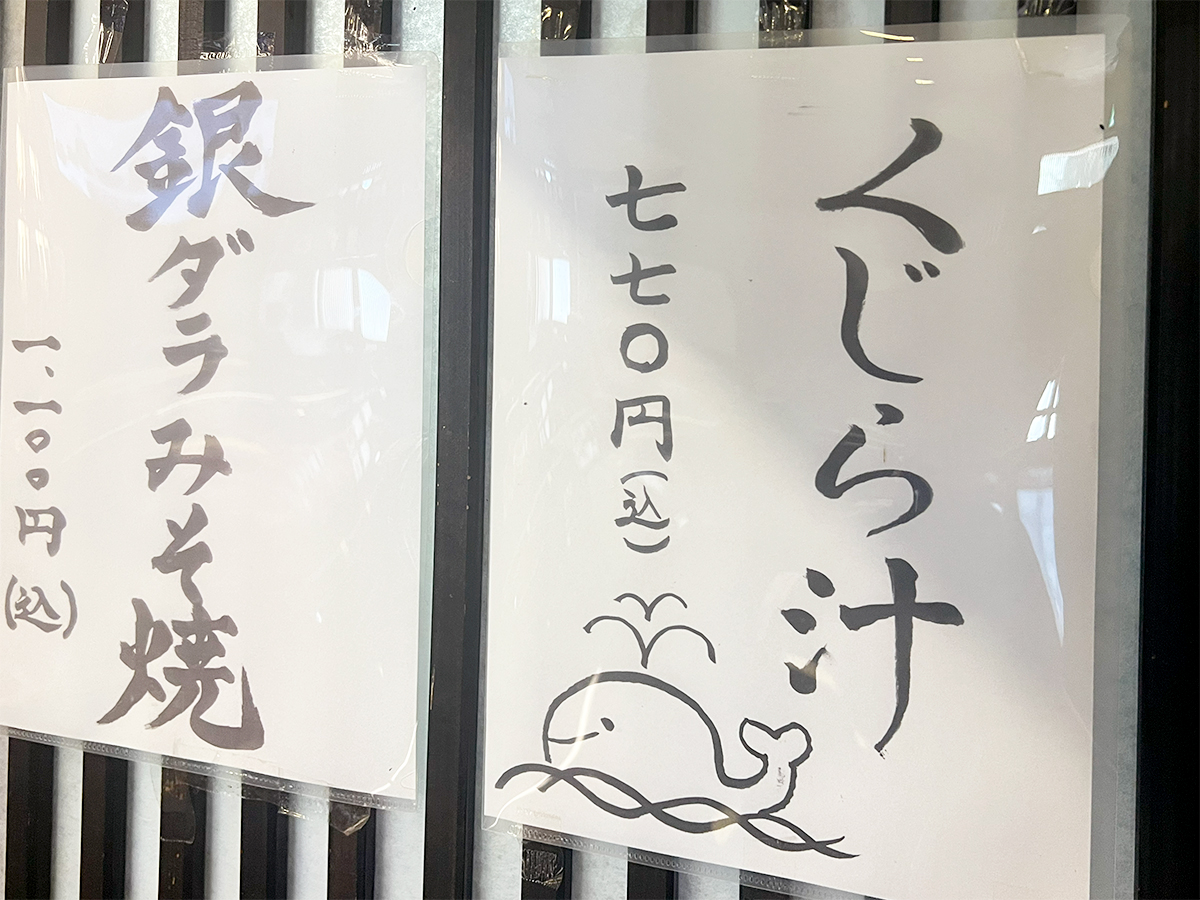 くじら汁
七七〇円(込)
銀ダラみそ焼
一、一〇〇円(込)